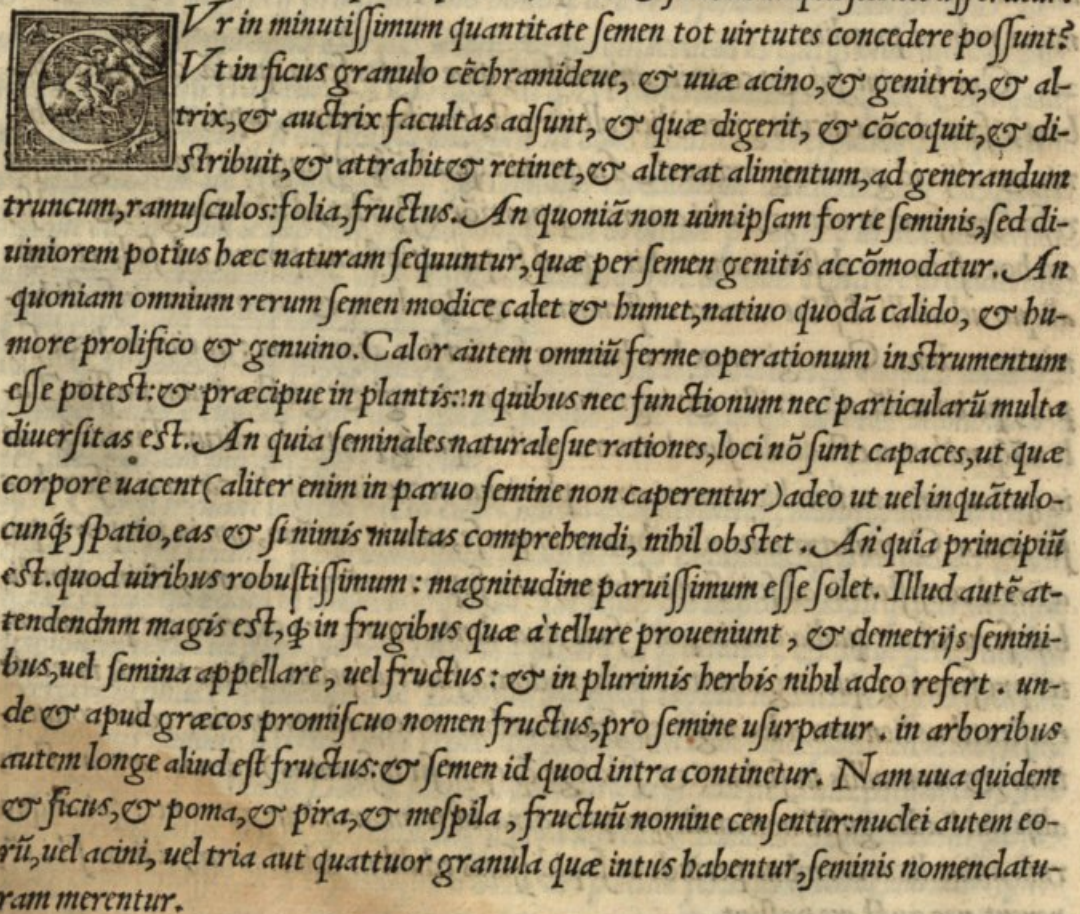 CVr in minutissimum quantitate semen tot uirtutes concedere possunt?
Vt in ficus granulo cẽchramideue, & uuæ acino,& genitrix,& al-
trix,& auctrix facultas adsunt, & quæ digerit, & cõcoquit,& di-
stribuit,& attrahit& retinet,& alterat alimentum,ad generandum
truncum,ramusculos:folia,fructus. An quoniã non uim ipsam forte seminis,sed di-
uiniorem potius hæc naturam sequuntur,quæ per semen genitis accõmodatur. An
quoniam omnium rerum semen modice calet & humet,natiuo quodã calido, & hu-
more prolifico & genuino. Calor autem omniũ ferme operationum instrumentum
esse potest:& præcipue in plantis:in quibus nec functionum nec particularũ multa
diuersitas est. An quia seminales naturalesue rationes,loci nõ sunt capaces,ut quæ
corpore uacent(aliter enim in paruo semine non caperentur)adeo ut uel in quãtulo-
cunq; spatio,eas & si nimis multas comprehendi, nihil obstet. An quia principiũ
est.quod uiribus robustissimum: magnitudine paruissimum esse solet. Illud autẽ at-
tendendnm magis est,ꝙ in frugibus quæ à tellure proueniunt, & demetrijs semini-
bus,uel semina appellare, uel fructus: & in plurimis herbis nihil adeo refert. un-
de & apud græcos promiscuo nomen fructus,pro semine usurpatur. in arboribus
autem longe aliud est fructus:& semen id quod intra continetur. Nam uua quidem
& ficus,& poma,& pira,& mespila, fructuũ nomine censentur:nuclei autem eo-
rũ,uel acini, uel tria aut quattuor granula quæ intus habentur,seminis nomenclatu-
ram merentur.